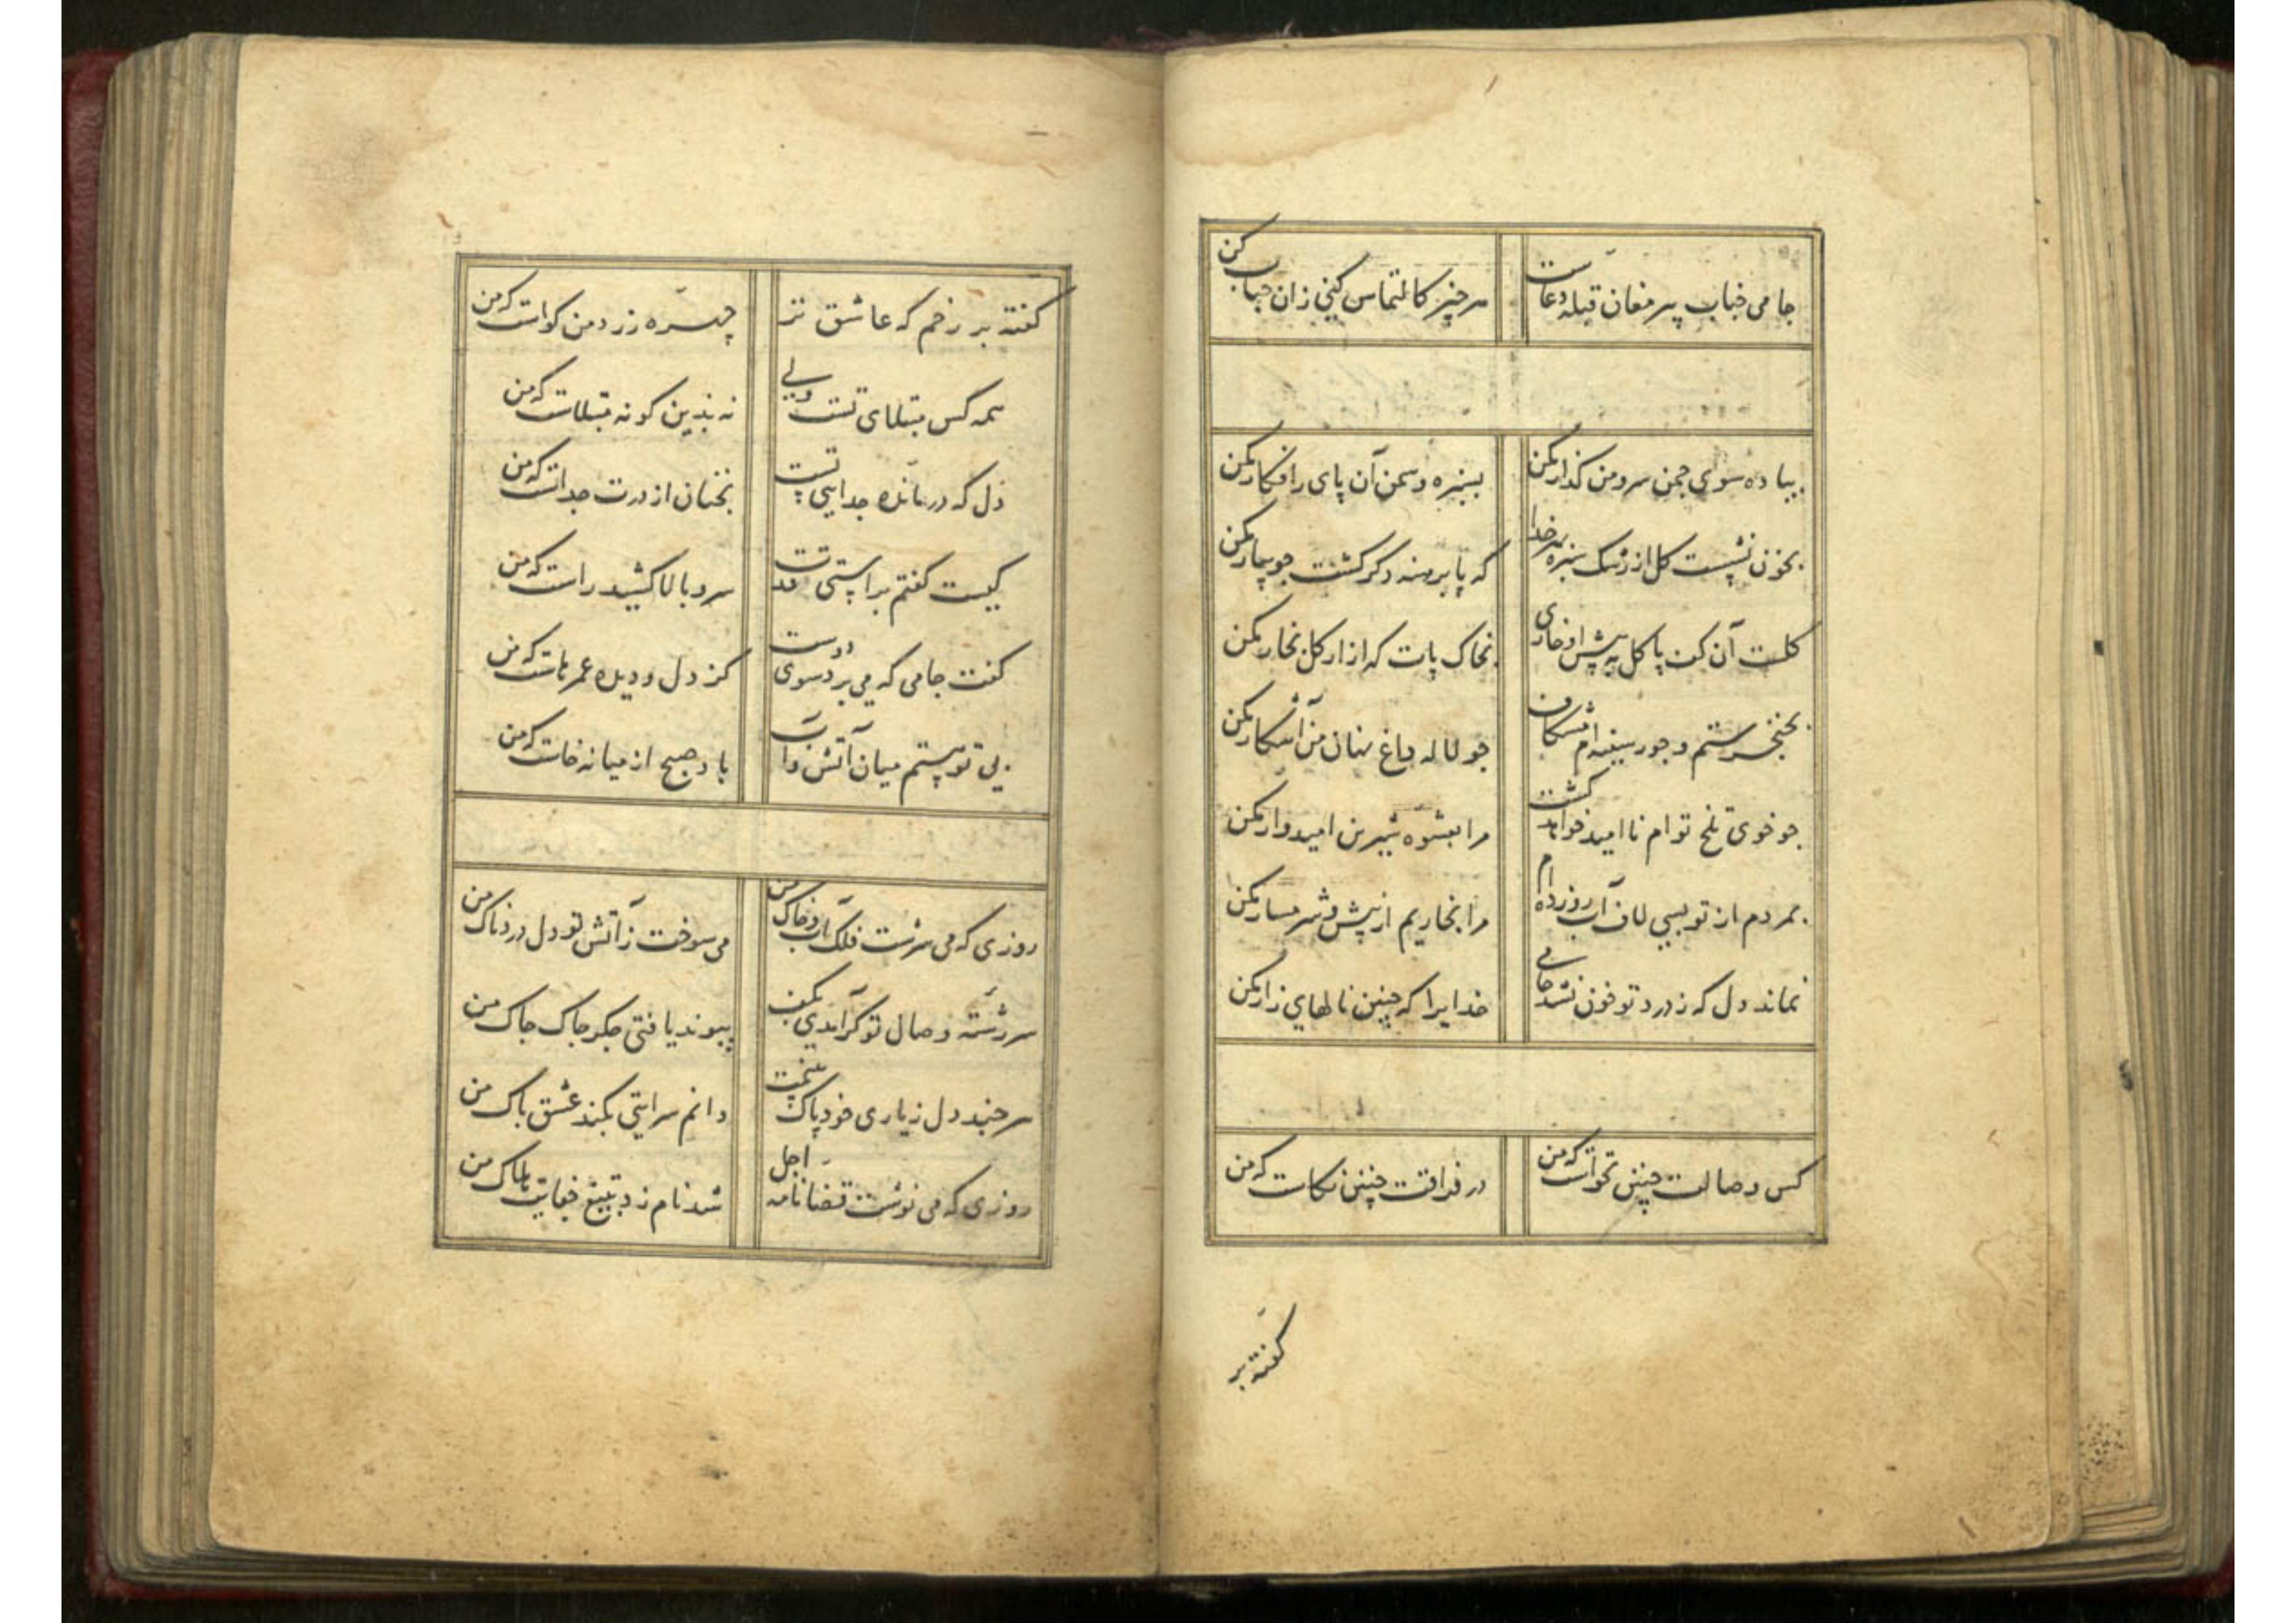 جامی جناب پیر مغان قبله دعاست
هر چیز کالتماس کنی زان جناب کن
پیاده سوی چمن سرو من گذار مکن
بسبزه و سمن آن پای را فکار مکن
بخون نشست کل از رشک سبزه بهر خدا
که پا برهنه دکر کشت جویبار مکن
کلست آن کف پا کل به پیش او خاری
بخاک پات که آزار کل بخار مکن
بخنجر ستم و جور سینه ام مشکاف
جو لاله داغ نهان من آشکار مکن
جو خوی تلخ توام ناامید خواهد کشت
مرا بعشوه شیرین امیدوار مکن
بمردم از تو بسی لاف آب رو زده ام
مرا بخاریم از پیش شرمسار مکن
نماند دل که ز درد تو خون نشد جامی
خدایرا که چنین نالهای زار مکن
کس وصالت چنین نخواست که من
در فراقت چنین نکاست که من
کفته بر
کفته بر رخم که عاشق تر
چهره زرد من کواست که من
همه کس مبتلای تست ولی
نه بدین کونه مبتلاست که من
دل که درمانده جدایی تست
نخنان از درت جداست که من
کیست کفتم براستی قدت
سرو بالا کشید راست که من
کفت جامی که می برد سوی دوست
کز دل و دیده عمرهاست که من
بی تو هستم میان آتش و آب
باد صبح از میانه خاست که من
روزی که می سرشت فلک آب و خاک من
می سوخت ز آتش تو دل دردناک من
سررشته وصال تو کر آمدی بکف
پیوند یافتی جکر جاک جاک من
هر چند دل ز یاری خود پاک
دانم سرایتی بکند عشق پاک من
روزی که می نوشت قضا نامه اجل
شد نامزد بتیغ جفایت هلاک من